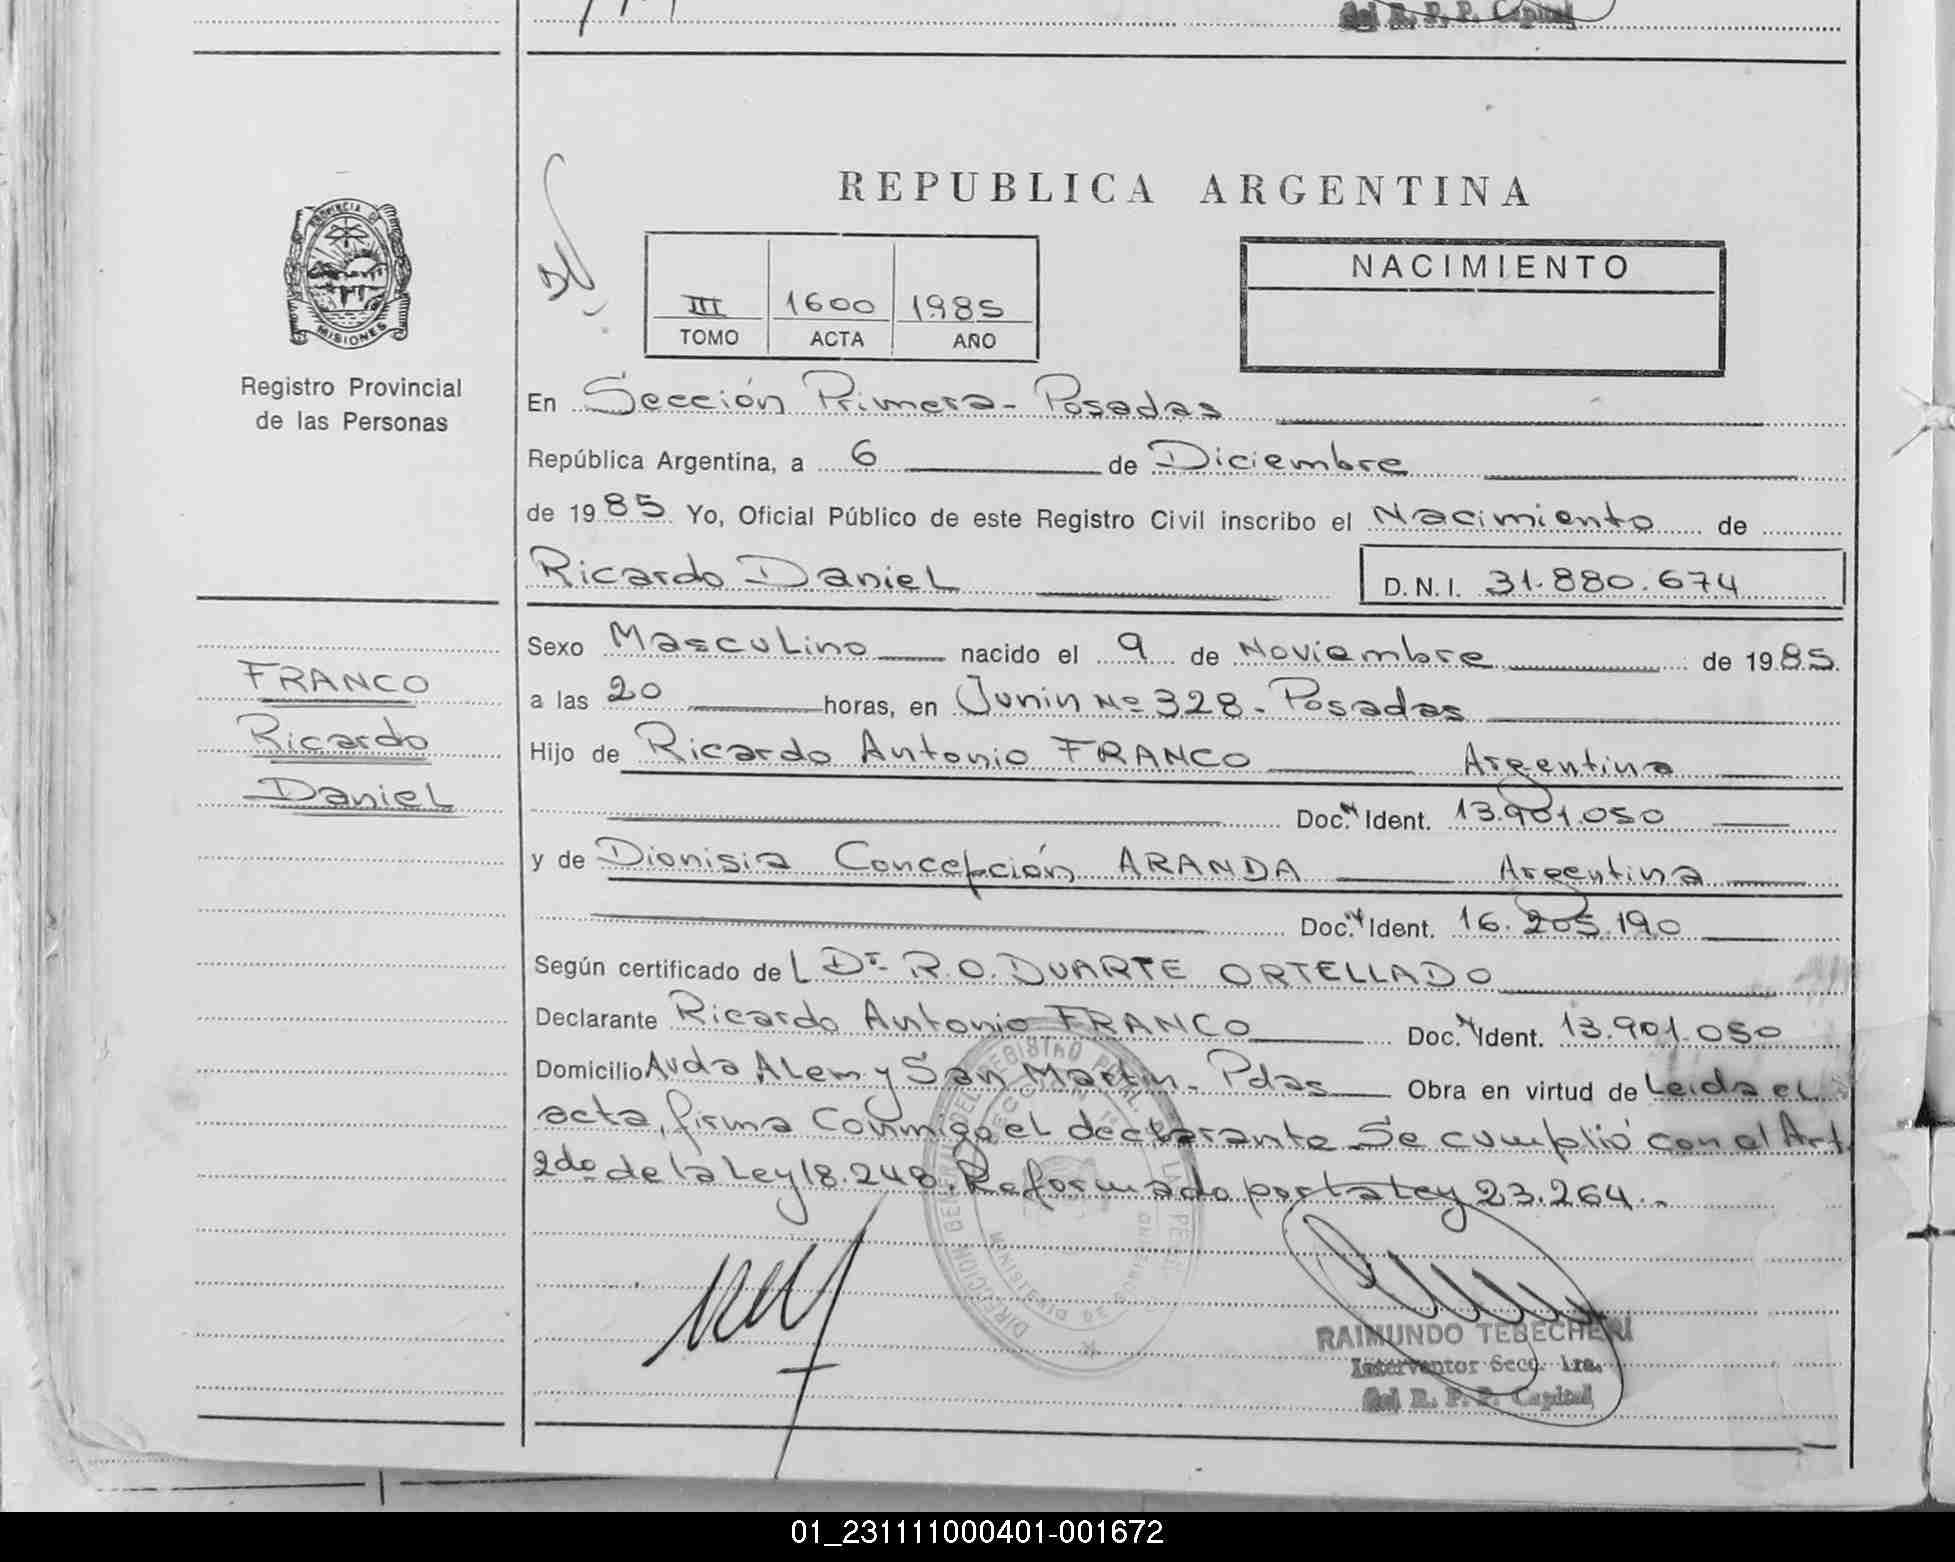 del R. P. P. Capital
PROVINCIA DE
MISIONES
Registro Provincial
de las Personas
REPUBLICA ARGENTINA
III 1600 1985
TOMO ACTA AÑO
NACIMIENTO
En Sección Primera - Posadas
República Argentina, a 6 de Diciembre
de 1985 Yo, Oficial Público de este Registro Civil inscribo el Nacimiento de
Ricardo Daniel D.N.I. 31.880.674
FRANCO
Ricardo
Daniel
Sexo Masculino nacido el 9 de Noviembre de 1985.
a las 20 horas, en Junin Nº 328 - Posadas
Hijo de Ricardo Antonio FRANCO Argentina
Doc. Ident. 13.901.050
y de Dionisia Concepción ARANDA Argentina
Doc. Ident. 16.205.190
Según certificado del Dr. R.O. DUARTE ORTELLADO
Declarante Ricardo Antonio FRANCO Doc. Ident. 13.901.050
Domicilio Avda Alem y San Martin - Pdas Obra en virtud de Leida el
acta, firma Conmigo el declarante. Se cumplió con el Art.
2do. de la Ley 18.248. Reformado por la Ley 23.264.-
RAIMUNDO TEBECHERI
Interventor Secc. 1ra.
del R. P. P. Capital
01_231111000401-001672